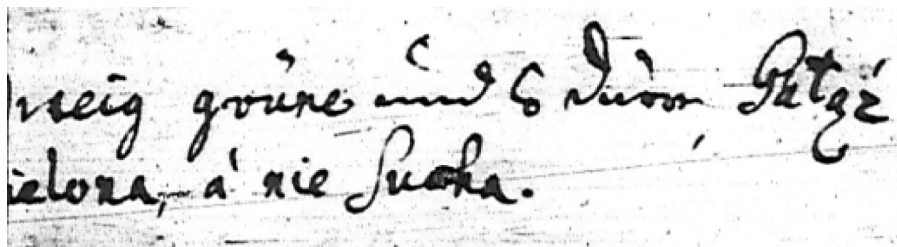 zweig grüne und 6 dürr Gałąź
zielona, á nie Sucha.